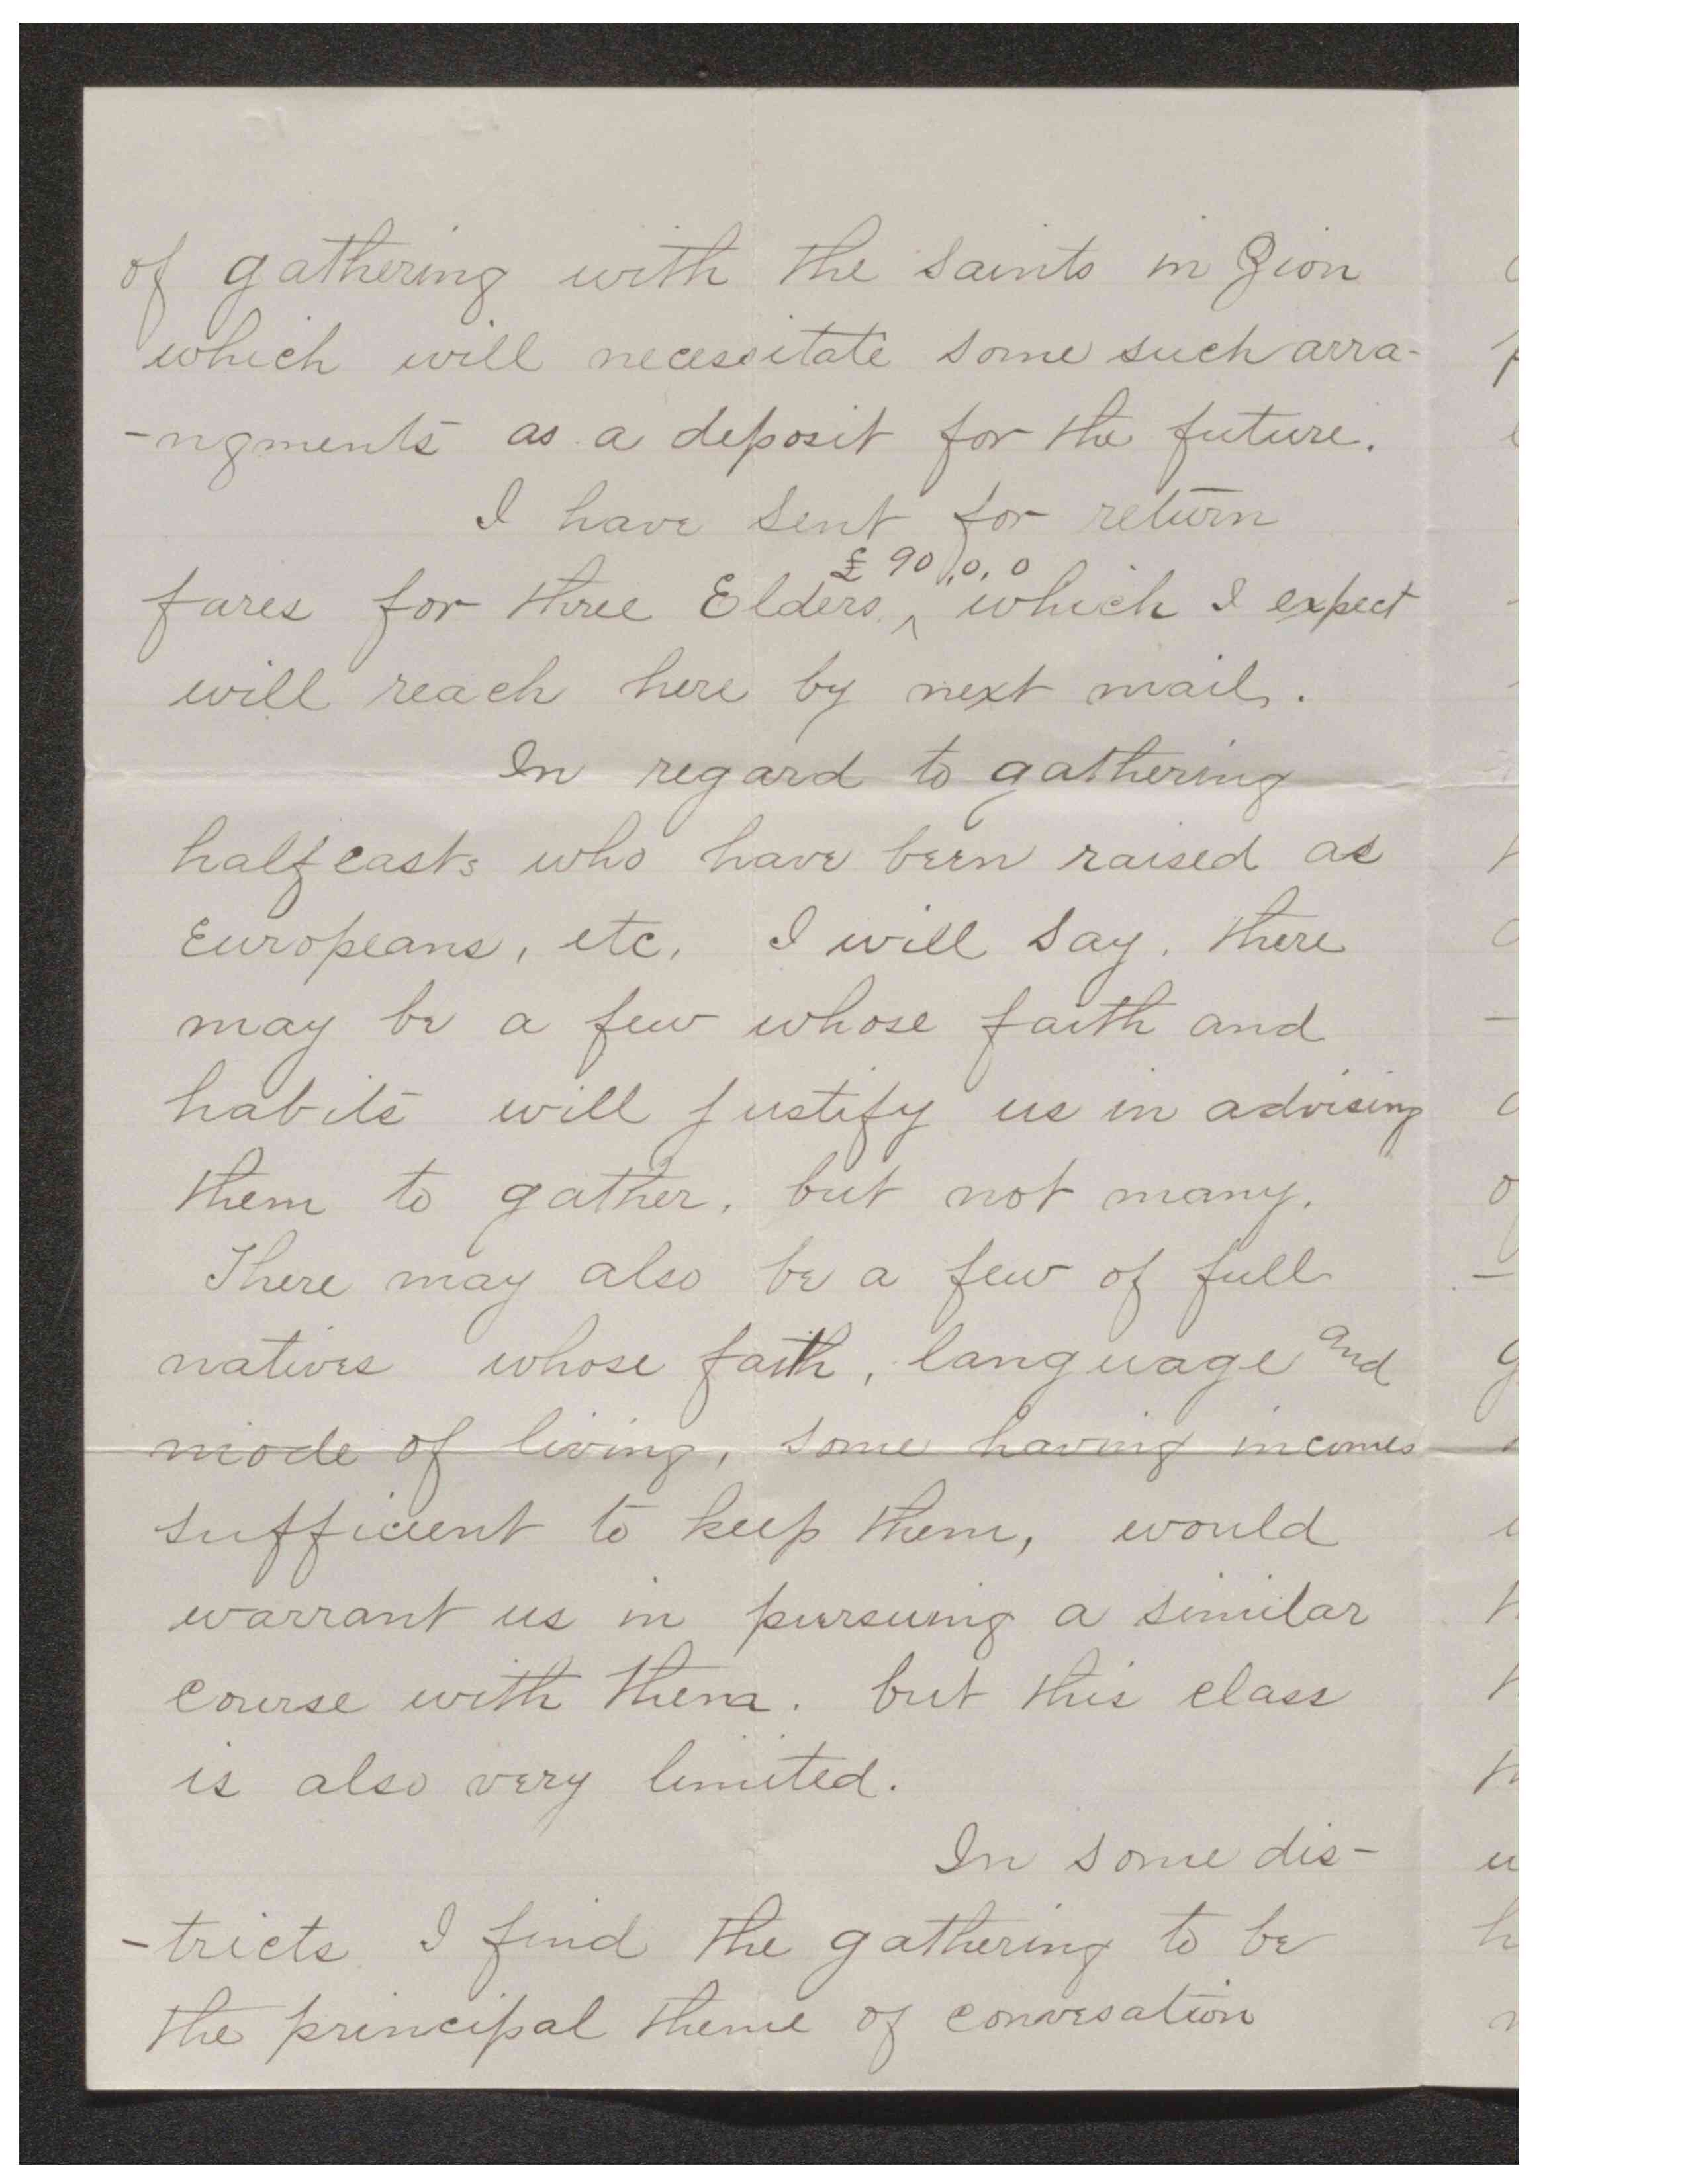 of gathering with the saints in Zion
which will necessitate some such arra-
-ngments as a deposit for the future.
I have sent for return
£90,0,0
fares for three Elders ^ which I expect
will reach here by next mail.
In regard to gathering
halfcasts who have been raised as
Europeans, etc. I will say, there
may be a few whose faith and
habits will justify us in advising
them to gather, but not many.
There may also be a few of full
natives whose faith, language and
mode of living, some having incomes
sufficient to keep them, would
warrant us in pursuing a similar
course with them. but this class
is also very limited.
In some dis-
-tricts I find the gathering to be
the principal theme of convesation